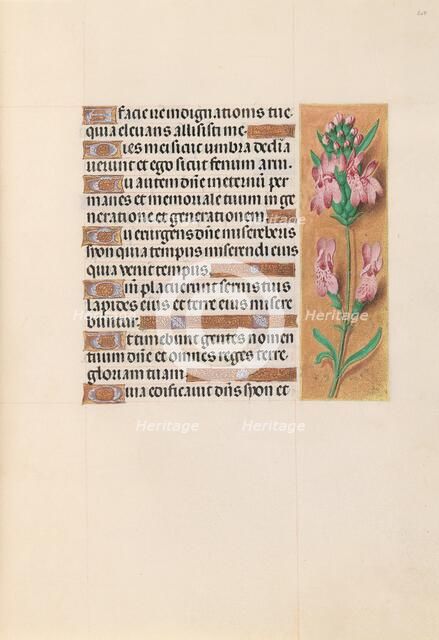 A facie ire indignationis tue
quia elevans allisisti me.
Dies mei sicut umbra declia
verunt et ego sicut fenum arui.
Tu autem dñe meternũ per
manes et memoriale tuum in ge
neratione et generationem.
Tu exurgens dñe misereberis
syon quia tempus miserendi eius
quia venit tempus.
Qm̃ placuerunt servis tuis
lapides eius et terre eius misere
buntur.
Et timebunt gentes nomen
tuum dñe et omnes reges terre
gloriam tuam.
Quia edificavit dñs syon et
Heritage Heritage
Heritage Heritage